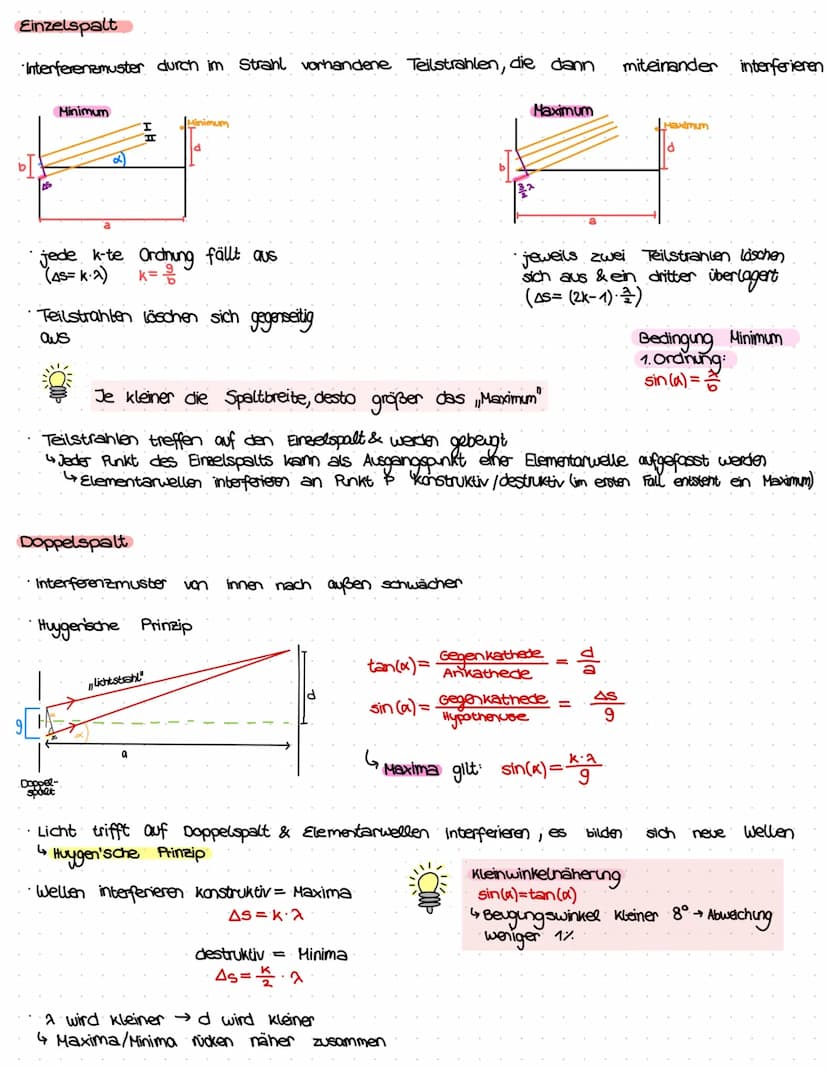 Einzelspalt
· Interferenzmuster durch im Strahl vorhandene Teilstrahlen, die dann miteinander interferieren
Minimum
I
II
Minimum
d
b
α
Δs
a
Maximum
Maximum
d
b
3/2 λ
a
· jede k-te Ordnung fällt aus
(Δs= k·λ) k= g/b
· Teilstrahlen löschen sich gegenseitig
aus
· jeweils zwei Teilstrahlen löschen
sich aus & ein dritter überlagert
(Δs= (2k-1)·λ/2)
Bedingung Minimum
1. Ordnung:
sin(α) = λ/b
Je kleiner die Spaltbreite, desto größer das „Maximum"
· Teilstrahlen treffen auf den Einzelspalt & werden gebeugt
↳ Jeder Punkt des Einzelspalts kann als Ausgangspunkt einer Elementarwelle aufgefasst werden
↳ Elementarwellen interferieren an Punkt P konstruktiv/destruktiv (im ersten Fall entsteht ein Maximum)
Doppelspalt
· Interferenzmuster von innen nach außen schwächer
· Huygen'sche Prinzip
„Lichtstrahl"
g
α
d
a
Doppel-
spalt
tan(α) = Gegenkathede/Ankathede = d/a
sin(α) = Gegenkathede/Hypothenuse = Δs/g
↳ Maxima gilt: sin(α) = k·λ/g
· Licht trifft auf Doppelspalt & Elementarwellen interferieren, es bilden sich neue Wellen
↳ Huygen'sche Prinzip
· Wellen interferieren konstruktiv = Maxima
Δs = k·λ
destruktiv = Minima
Δs = k/2 · λ
Kleinwinkelnäherung
sin(α) = tan(α)
↳ Beugungswinkel kleiner 8° → Abweichung
weniger 1%
· λ wird kleiner → d wird kleiner
↳ Maxima/Minima rücken näher zusammen